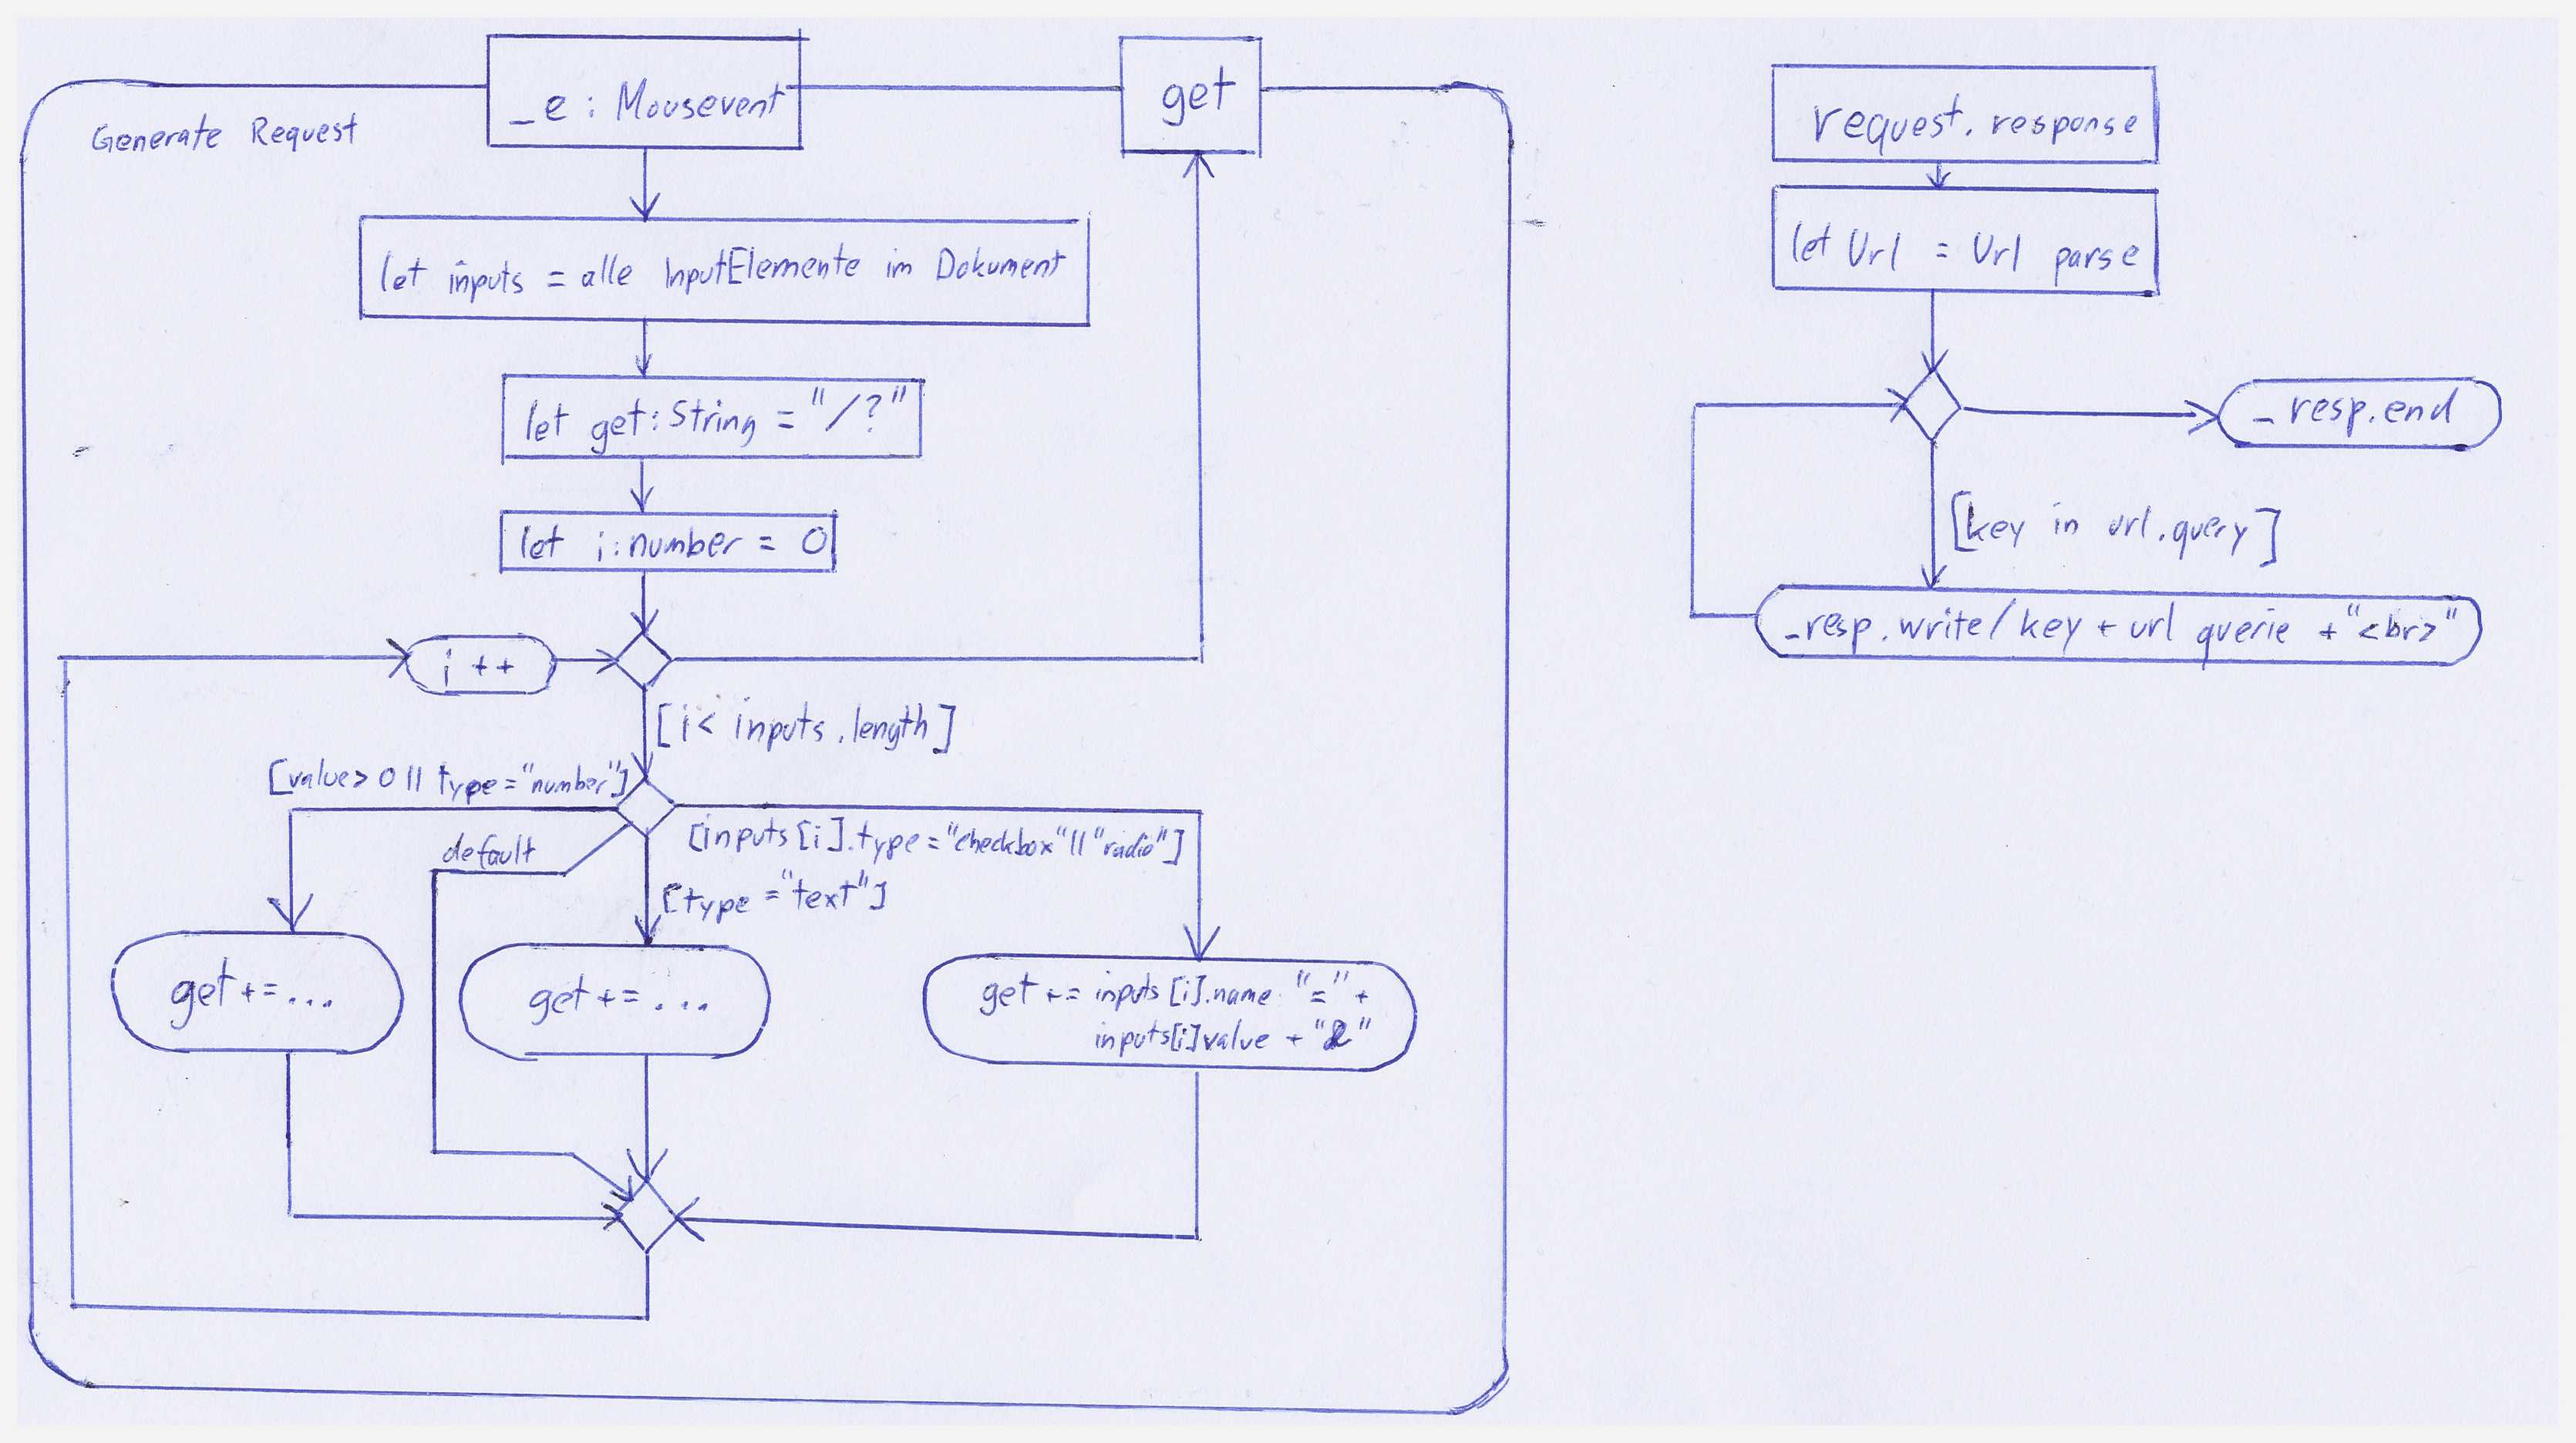 Generate Request
_e : Mousevent
get
let inputs = alle InputElemente im Dokument
let get:String = "/?"
let i:number = 0
i ++
[i< inputs.length]
[value> 0 || type="number"]
default
[inputs[i].type="checkbox"||"radio"]
[type="text"]
get+=...
get+=...
get += inputs[i].name "=" +
inputs[i]value + "&"
request.response
let Url = Url parse
_resp.end
[key in url.query]
_resp.write/key + url querie +"<br>"